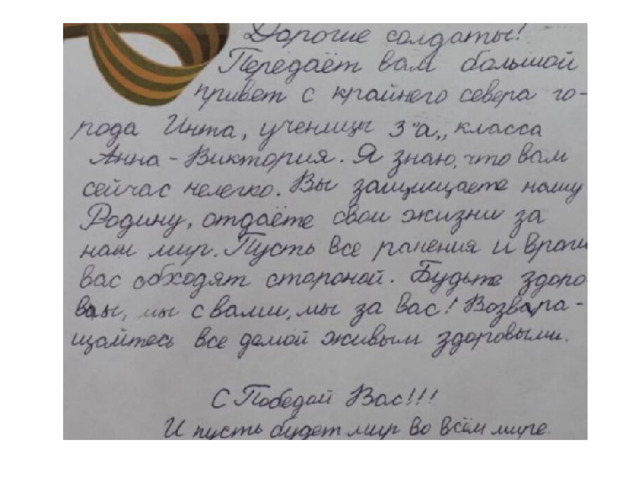 Дорогие солдаты!
Передаёт вам большой
привет с крайнего севера го-
рода Инта, ученицы 3 "а,, класса
Анна-Виктория. Я знаю, что вам
сейчас нелегко. Вы защищаете нашу
Родину, отдаёте свои жизни за
наш мир. Пусть все ранения и враги
вас обходят стороной. Будьте здоро
вы, мы с вами, мы за вас! Возвра-
щайтесь все домой живым здоровыми.
С Победой Вас!!!
И пусть будет мир во всём мире.